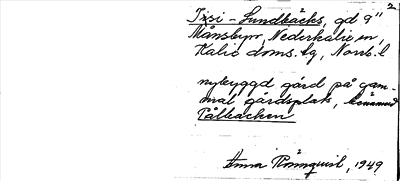 2
Issi-Lundbäcks, gd 9"
Månsbyn, Nederkalix sn,
Kalix doms. tg, Norrb. l
nybyggd gård på gam-
mal gårdsplats, benämnd
Pålbacken
Anna Rönnqvist, 1949